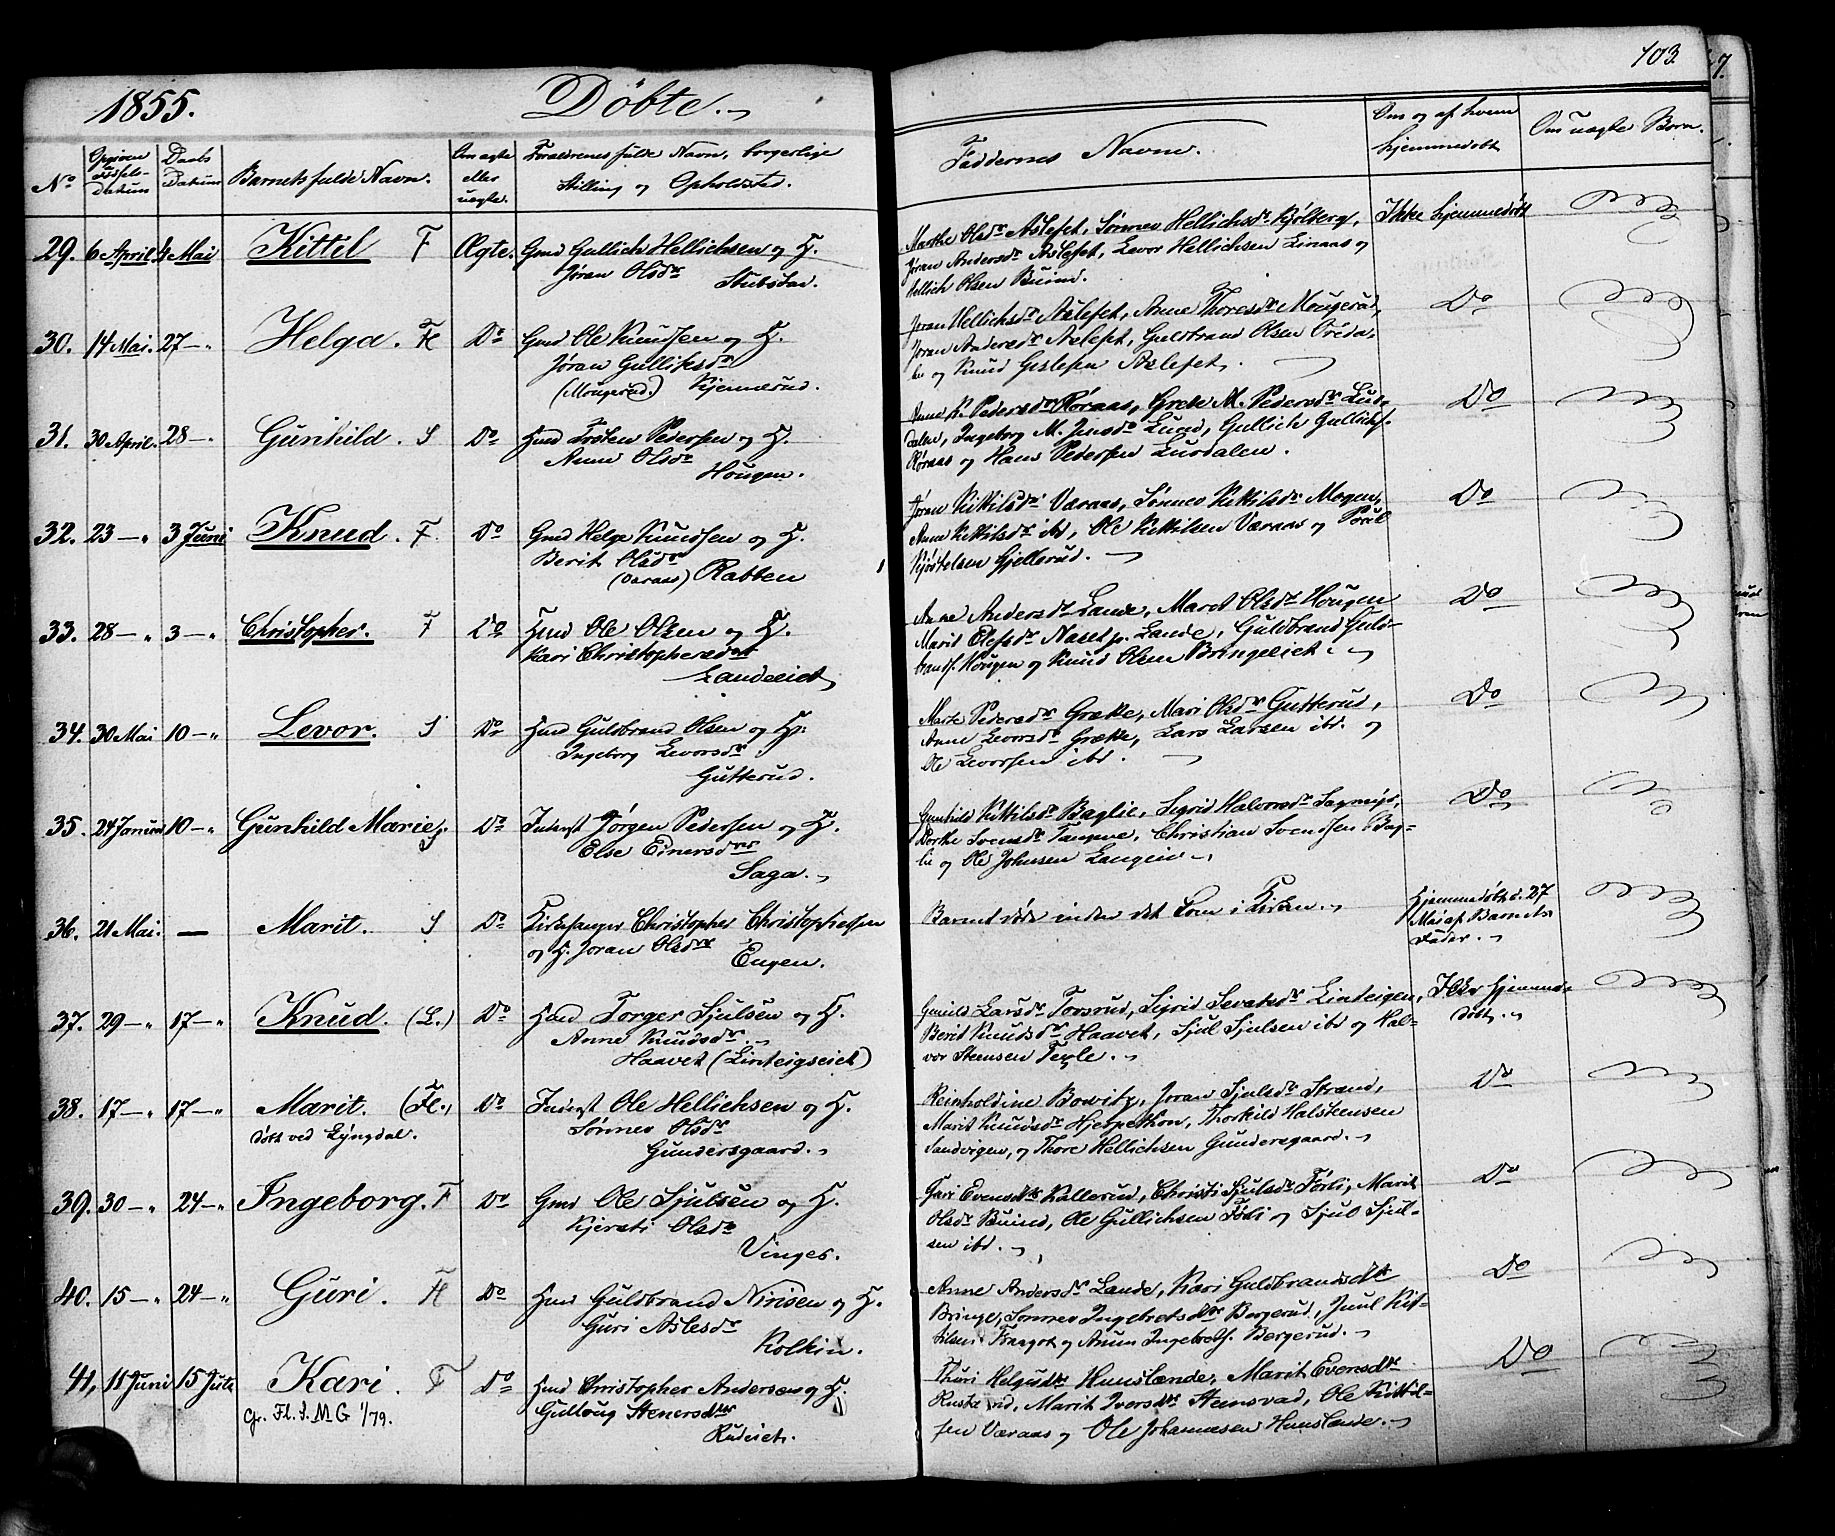 103.
1855. Döbte.
No
Opgiven Fødsels-Datum
Daabs Datum
Barnets fulde Navn.
Om ægte eller uægte.
Forældrenes fulde Navn, borgerlige Stilling og Opholdsted.
Faddernes Navne.
Om og af hvem hjemmedøbt
Om uægte Børn.
29. 6 April. 4 Mai Kittil F Ægte. Gmd Gullich Hellichsen og H.
Jøran Olsdr
Stubstad.
Marthe Olsdr Aslefet, Sønnev Hellichsdr Kjølberg,
Jøran Andersdr Aslefet, Levor Hellichsen Linaas og
Hellich Olsen Buind.
Ikke hjemmedøbt
30. 14 Mai. 27 — " Helga. Fl Do Gmd Ole Knudsen og H.
Jøran Gulliksdr
(Mougerud.) Kjennerud.
Jøran Hellichsdr Aslefet, Anne Thoresdr Mougerud,
Jøran Andersdr Aslefet, Guldbrand Olsen Ørsda-
lie og Knud Gislesen Aslefet.
Do
31. 30 April. 28 — Gunhild. S Do Hmd Torsten Pedersen og H.
Anne Olsdr
Hougen.
Anne K. Pedersdr Røraas, Grete M. Pedersdr Lus-
dalen, Ingeborg M. Jensdr Lund, Gullich Gullichs.
Røraas og Hans Pedersen Lusdalen.
Do
32. 23 — " 3 Juni Knud. F. Do Gmd Helge Knudsen og H.
Berit Olsdr
(Væraas) Rabben
Jøran Kittilsdr Væraas, Sønnev Kittilsdr Mogen,
Anne Kittilsdr ibd, Ole Kittilsen Væraas og Poul
Kjøstelsen Gjellerud.
Do
33. 28 — " 3 — " Christopher. F Do Hmd Ole Olsen og H.
Kari Christophersdatt
Landeeiet
Anne Andersdr Lande, Maret Olsdr Hougen
Marit Olefsdr Naset p. Lande, Guldbrand Guld-
brands. Hougen og Knud Olsen Bringeeiet.
Do
34. 30 Mai 10 — " Levor. S Do Hmd Guldbrand Olsen og H.
Ingeborg Levorsdr
Gutterud.
Marte Pedersdr Grætte, Mari Olsdr Gutterud,
Anne Levorsdr Grætte, Lars Larsen ibd. og
Ole Levorsen ibd.
Do
35. 24 Januar 10 — " Gunhild Marie S. Do Inderst Jørgen Pedersen og H.
Else Einersdtr
Saga.
Gunhild Kittilsdr Baglie, Sigrid Halvorsdr
Dorthe Svensdr Tangene, Christian Svendsen Bag-
lie og Ole Johnsen Langeie.
Do
36. 21 Mai. — Marit. S Do Kirkesanger Christopher Christophersen
og H. Jøran Olsdtr
Engen.
Barnet døde inden det kom i Kirken.
Hjemmedøbt d. 27
Mai af Barnets
Fader.
37. 29 — " 17 — " Knud. (L.) Do Hmd Torger Sjulsen og H.
Anne Knudsdr.
Haavet (Linteigseiet)
Gunild Larsdr Torsrud, Sigrid Sevatsdr Linteigen,
Berit Knudsdr Haavet, Sjul Sjulsen ibd og Hal-
vor Steensen Teyle.
Ikke hjemme-
døbt.
38. 17 — " 17 — " Marit. (Fl.) Do Inderst Ole Hellichsen og H.
døbt ved Lyngdal. Sønnev Olsdr
Gundersgaard.
Reinholdine Bowitz, Jøran Sjulsdr Strand,
Marit Knudsdr Hjerpetkon, Thorkild Halstensen
Sandvigen, og Thore Hellichsen Gundersgaard.
Do
39. 30 — " 24 — " Ingeborg. F Do Gmd Ole Sjulsen og H.
Kjersti Olsdr
Vinges.
Gury Evensdtr Kallerud, Christi Sjulsdr Forli, Marit
Olsdr Buind, Ole Gullichsen Foli og Sjul Sjul-
sen ibd.
Do
40. 15 — " 24 — " Guri. Fl Do Hmd Guldbrand Nirisen og H.
Guri Aslesdr
Kolkin.
Anne Andersdr Lande, Kari Guldbrandsdtr
Bringe, Sønnev Ingebretsdtr Bergerud, Juul Kit-
tilsen Fraagot og Anun Ingebrets. Bergerud.
Do
41. 11 Juni 15 Juli Kari. F Do Hmd Christopher Andersen og H.
Gr. Fl. S. M G 1/79. Gulloug Stenersdtr
Rudeiet.
Thuri Helgesdtr Hunslænde, Marit Evensdtr
Marit Iversdtr Stensrud, Ole Kittil-
sen Væraas og Ole Johannesen Hunslænde.
Do